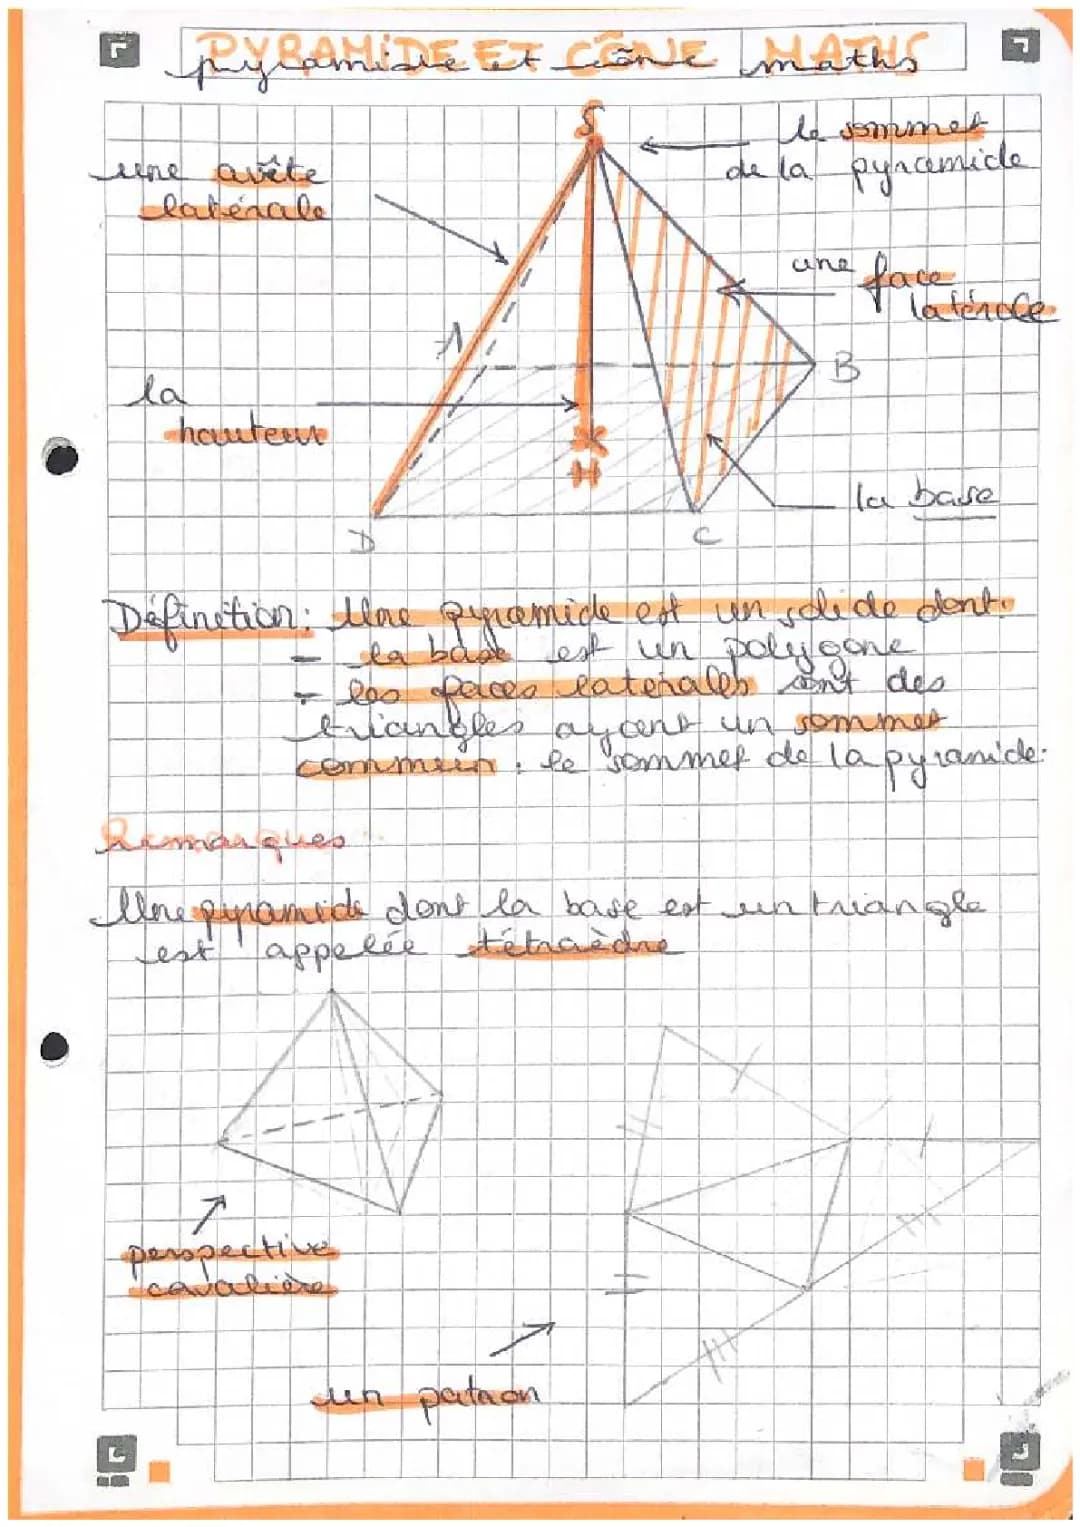 PYRAMIDE ET CÔNE MATHS
pyramide et cône maths
S
le sommet
de la pyramide
une arête
latérale
une face
latérale
A
B
la
hauteur
H
la base
D
C
Définition: Une pyramide est un solide dont:
- la base est un polygone
- les faces latérales sont des
triangles ayant un sommet
commun : le sommet de la pyramide.
Remarques :
Une pyramide dont la base est un triangle
est appelée tétraèdre
perspective
cavalière
un patron